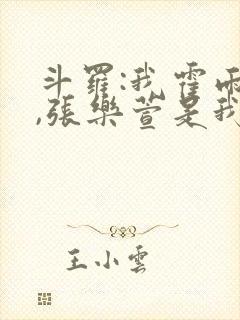 斗羅:我霍雨
,張樂萱是我
王小雲